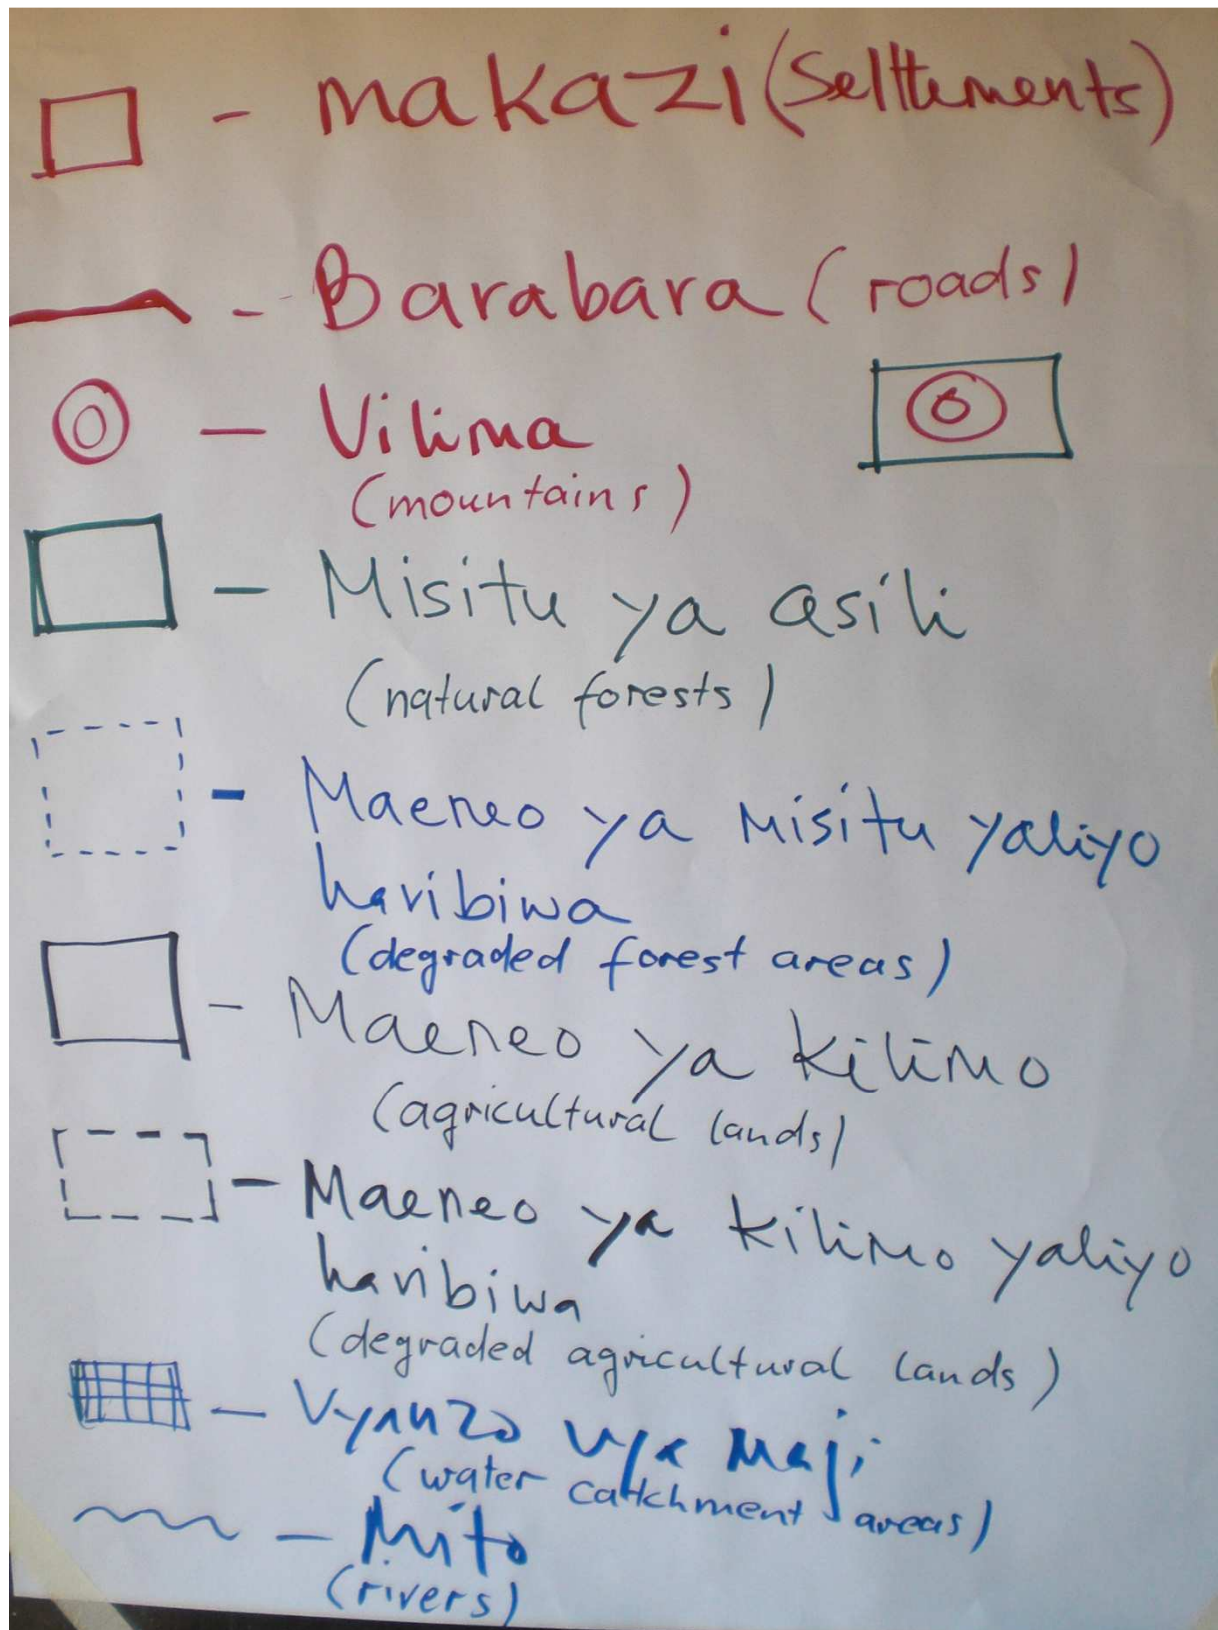 - makazi (Selttements)
- Barabara (roads)
- Vilima
(mountains)
- Misitu ya asili
(natural forests)
- Maeneo ya Misitu yaliyo
haribiwa
(degraded forest areas)
- Maeneo ya kilimo
(agricultural lands)
- Maeneo ya kilimo yaliyo
haribiwa
(degraded agricultural lands)
- Vyanzo vya Maji
(water catchment areas)
- Mito
(rivers)